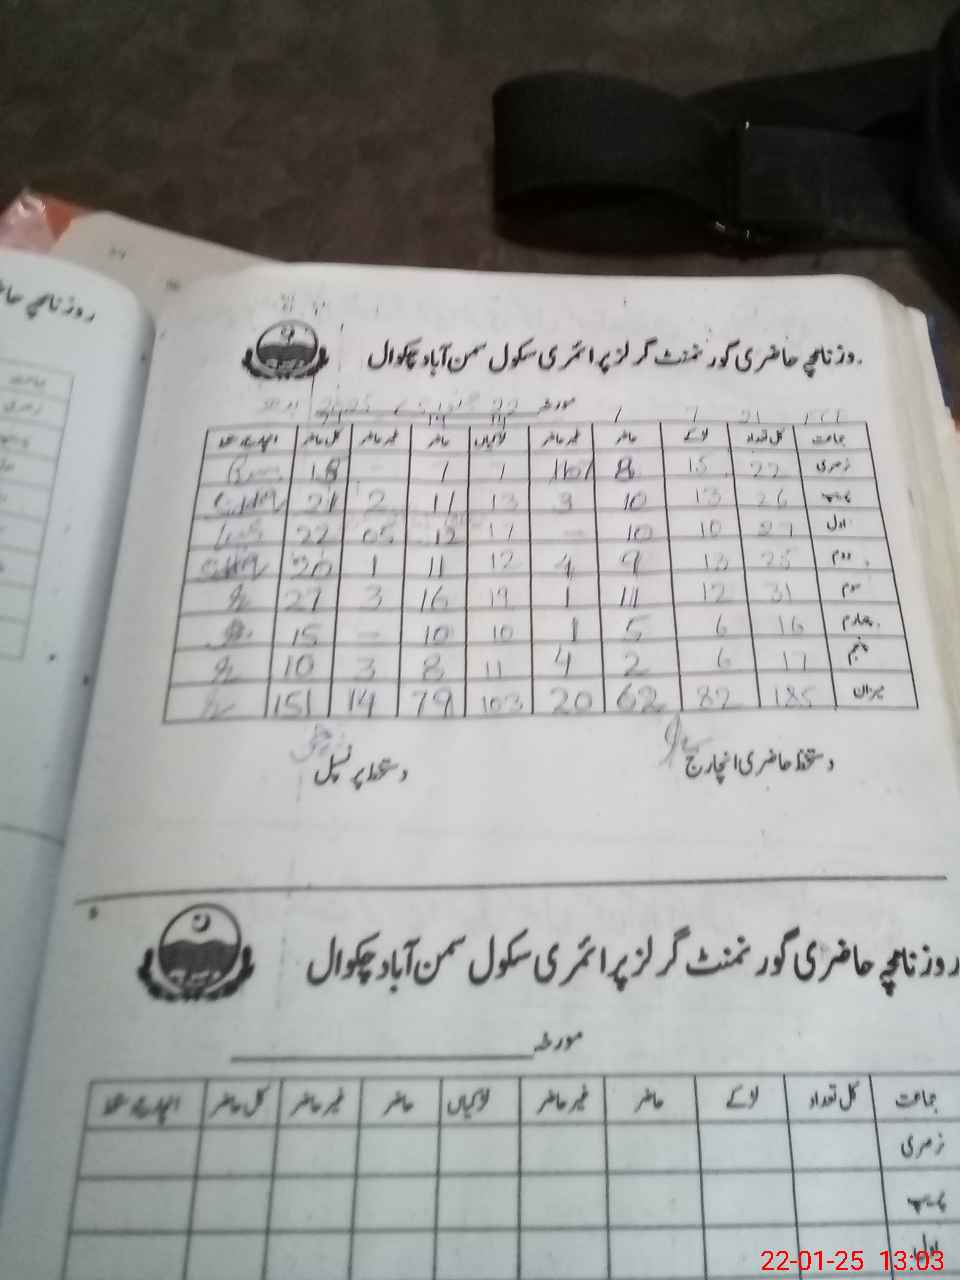 روزنامچہ حا
روزنامچہ حاضری گورنمنٹ گرلز پرائمری سکول سمن آباد چکوال
مورخہ 22
جماعت کل تعداد لڑکے حاضر غیر حاضر لڑکیاں حاضر غیر حاضر کل حاضر
نرسری 22 15 8 7 7 - 18
26 13 10 3 13 11 2 21
اول 27 10 10 - 17 12 05 22
دوم 25 13 9 4 12 11 1 20
سوم 31 12 11 1 19 16 3 27
چہارم 16 6 5 1 10 10 - 15
پنجم 17 6 2 4 11 8 3 10
میزان 185 82 62 20 103 79 14 151
دستخط حاضری انچارج
دستخط پرنسپل
روزنامچہ حاضری گورنمنٹ گرلز پرائمری سکول سمن آباد چکوال
مورخہ
جماعت کل تعداد لڑکے حاضر غیر حاضر لڑکیاں حاضر غیر حاضر کل حاضر
نرسری
اول
22-01-25 13:03